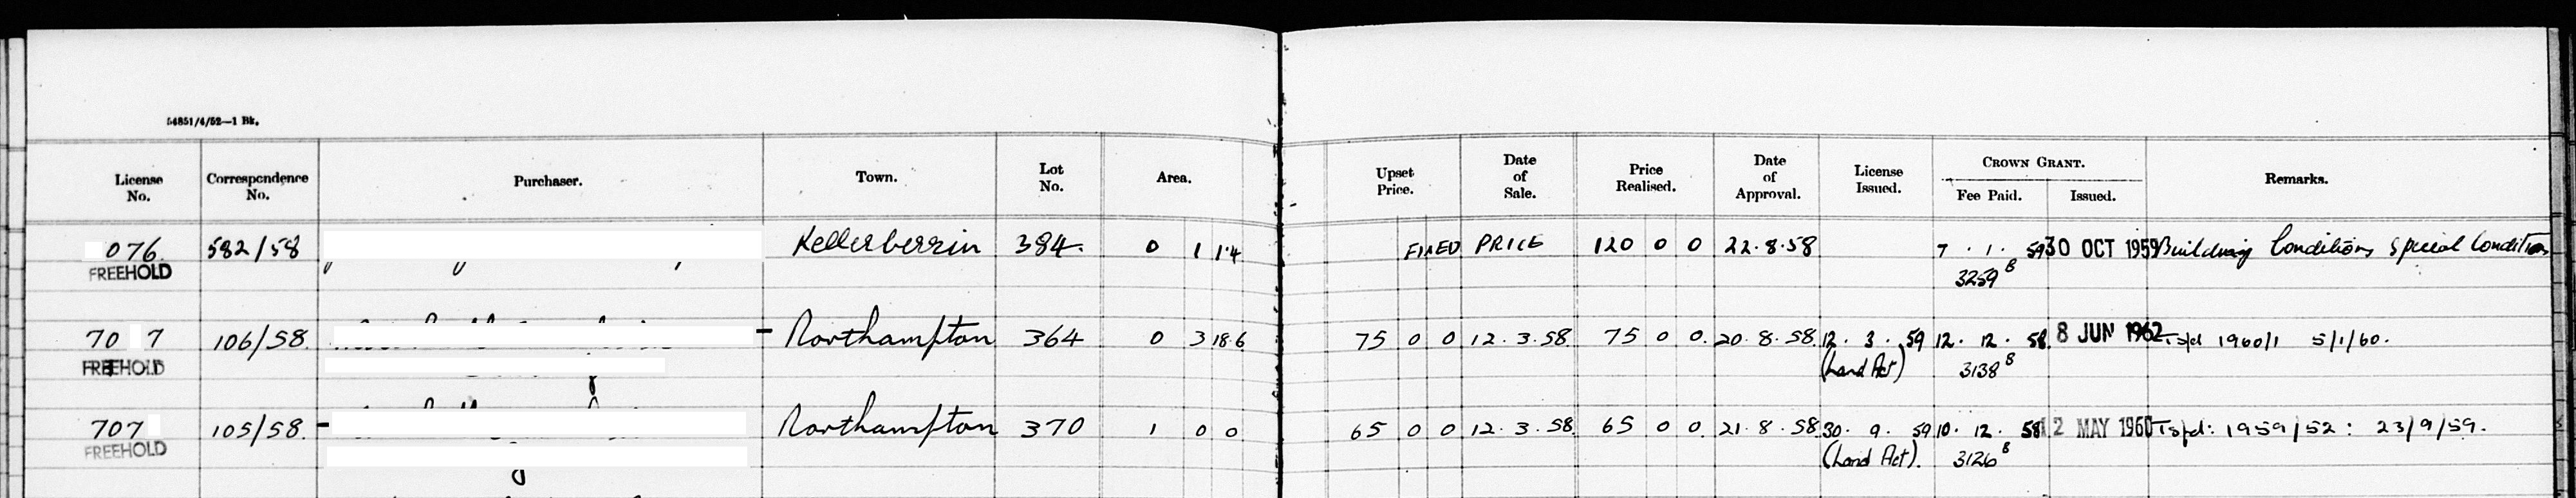 54851/4/52—1 Bk.
License No. Correspondence No. Purchaser. Town. Lot No. Area. Upset Price. Date of Sale. Price Realised. Date of Approval. License Issued. CROWN GRANT. Fee Paid. Issued. Remarks.
076. 582/58 Kellerberrin 384. 0 1 1.4 FIXED PRICE 120 0 0 22.8.58 7 . 1 . 59 30 OCT 1959 Building Conditions Special Condition
FREEHOLD 3259 B
70 7 106/58. Northampton 364 0 3 18.6 75 0 0 12.3.58. 75 0 0. 20.8.58. 12 . 3 . 59 12. 12 . 58. 8 JUN 1962 Tsfd 1960/1 5/1/60.
FREEHOLD (Land Act) 3138 B
707 105/58. Northampton 370 1 0 0 65 0 0 12.3.58. 65 0 0. 21.8.58 30. 9. 59 10. 12. 58 12 MAY 1960 Tsfd: 1959/52: 23/9/59.
FREEHOLD (Land Act). 3126 B